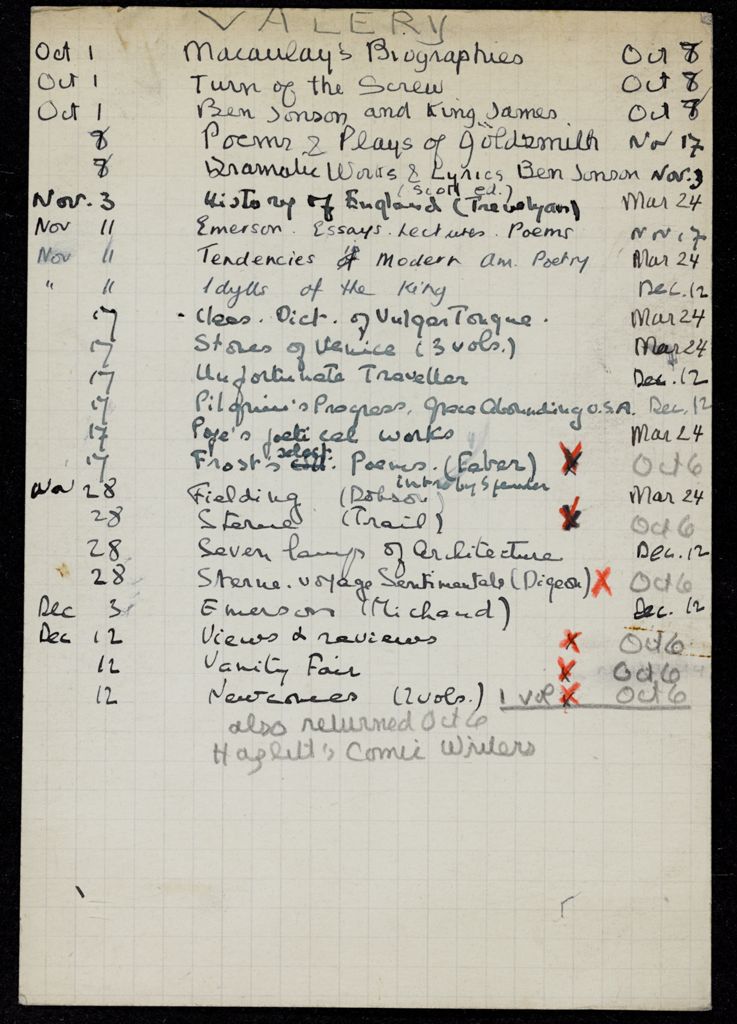 VALERY
Oct 1 Macaulay's Biographies Oct 8
Oct 1 Turn of the Screw Oct 8
Oct 1 Ben Jonson and King James Oct 8
8 Poems & Plays of Goldsmith Nov 17
8 Dramatic Works & Lyrics Ben Jonson Nov. 3
(Scott ed.)
Nov. 3 History of England (Trevelyan) Mar 24
Nov 11 Emerson. Essays. Lectures. Poems Nov 17
Nov 11 Tendencies of Modern Am. Poetry Mar 24
" 11 Idylls of the King Dec. 12
17 Class. Dict. of Vulgar Tongue. Mar 24
17 Stones of Venice (3 vols.) Mar 24
17 Unfortunate Traveller Dec. 12
17 Pilgrim's Progress, Grace Abounding O.S.A. Dec. 12
17 Pope's poetical works Mar 24
17 Frost's select. Poems. (Faber) X Oct 6
intro by
Nov 28 Fielding (Dobson) Mar 24
28 Sterne (Trail) X Oct 6
28 Seven lamps of Architecture Dec. 12
28 Sterne. Voyage Sentimentale (Digeon) X Oct 6
Dec 3 Emerson (Michaud) Dec. 12
Dec 12 Views & reviews X Oct 6
12 Vanity Fair X Oct 6
12 Newcomes (2 vols.) 1 vol X Oct 6
also returned Oct 6
Hazlitt's Comic Writers